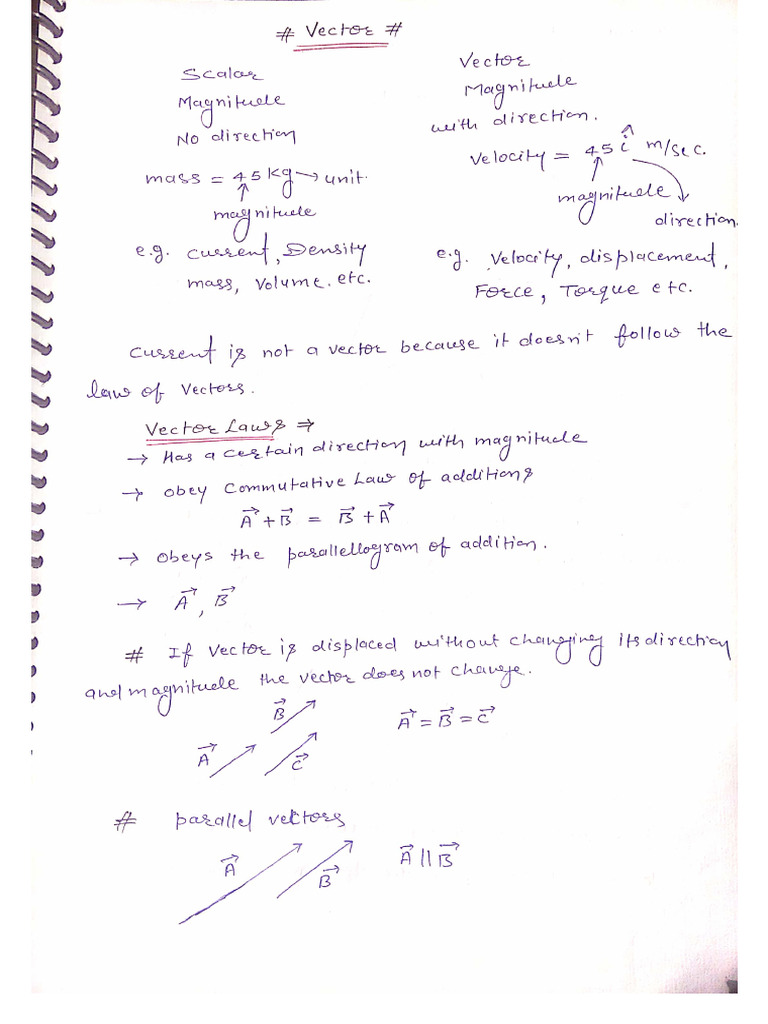 # Vector #
Scalar
Magnitude
No direction
mass = 45 kg → unit.
↑
magnitude
e.g. current, Density
mass, Volume. etc.
Vector
Magnitude
with direction.
Velocity = 45 î m/sec.
magnitude
direction.
e.g. Velocity, displacement,
Force, Torque etc.
Current is not a vector because it doesn't follow the
law of Vectors.
Vector Laws ⇒
→ Has a certain direction with magnitude
→ obey Commutative Law of additions
A⃗ + B⃗ = B⃗ + A⃗
→ obeys the parallellogram of addition.
→ A⃗, B⃗
# If Vector is displaced without changing its direction
and magnitude the vector does not change.
B⃗
A⃗
C⃗
A⃗ = B⃗ = C⃗
# parallel vectors
A⃗
B⃗
A⃗ || B⃗